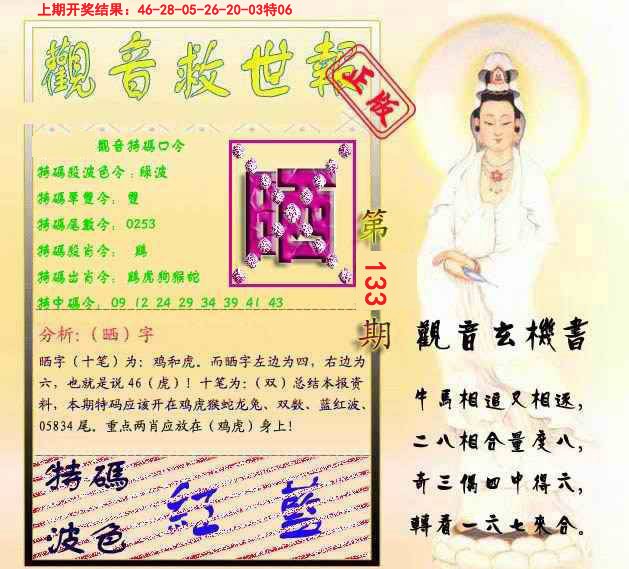 上期开奖结果：46-28-05-26-20-03特06
觀音救世報
正版
觀音特碼口令
特碼段波色令：綠波
特碼單雙令： 雙
特碼尾數令： 0253
特碼段肖令： 鷄
特碼出肖令： 鷄虎狗猴蛇
特中碼令： 09 12 24 29 34 39 41 43
晒
第
133
期
分析:（晒）字
晒字（十笔）为：鸡和虎。而晒字左边为四，右边为
六，也就是说 46（虎）！十笔为:（双）总结本报资
料，本期特码应该开在鸡虎猴蛇龙兔、双数、蓝红波、
05834 尾。重点两肖应放在（鸡虎）身上！
特碼
波色
紅 藍
觀音玄機書
牛馬相追又相逐，
二八相合量度八，
奇三偶四中得六，
轉看一六七來合。